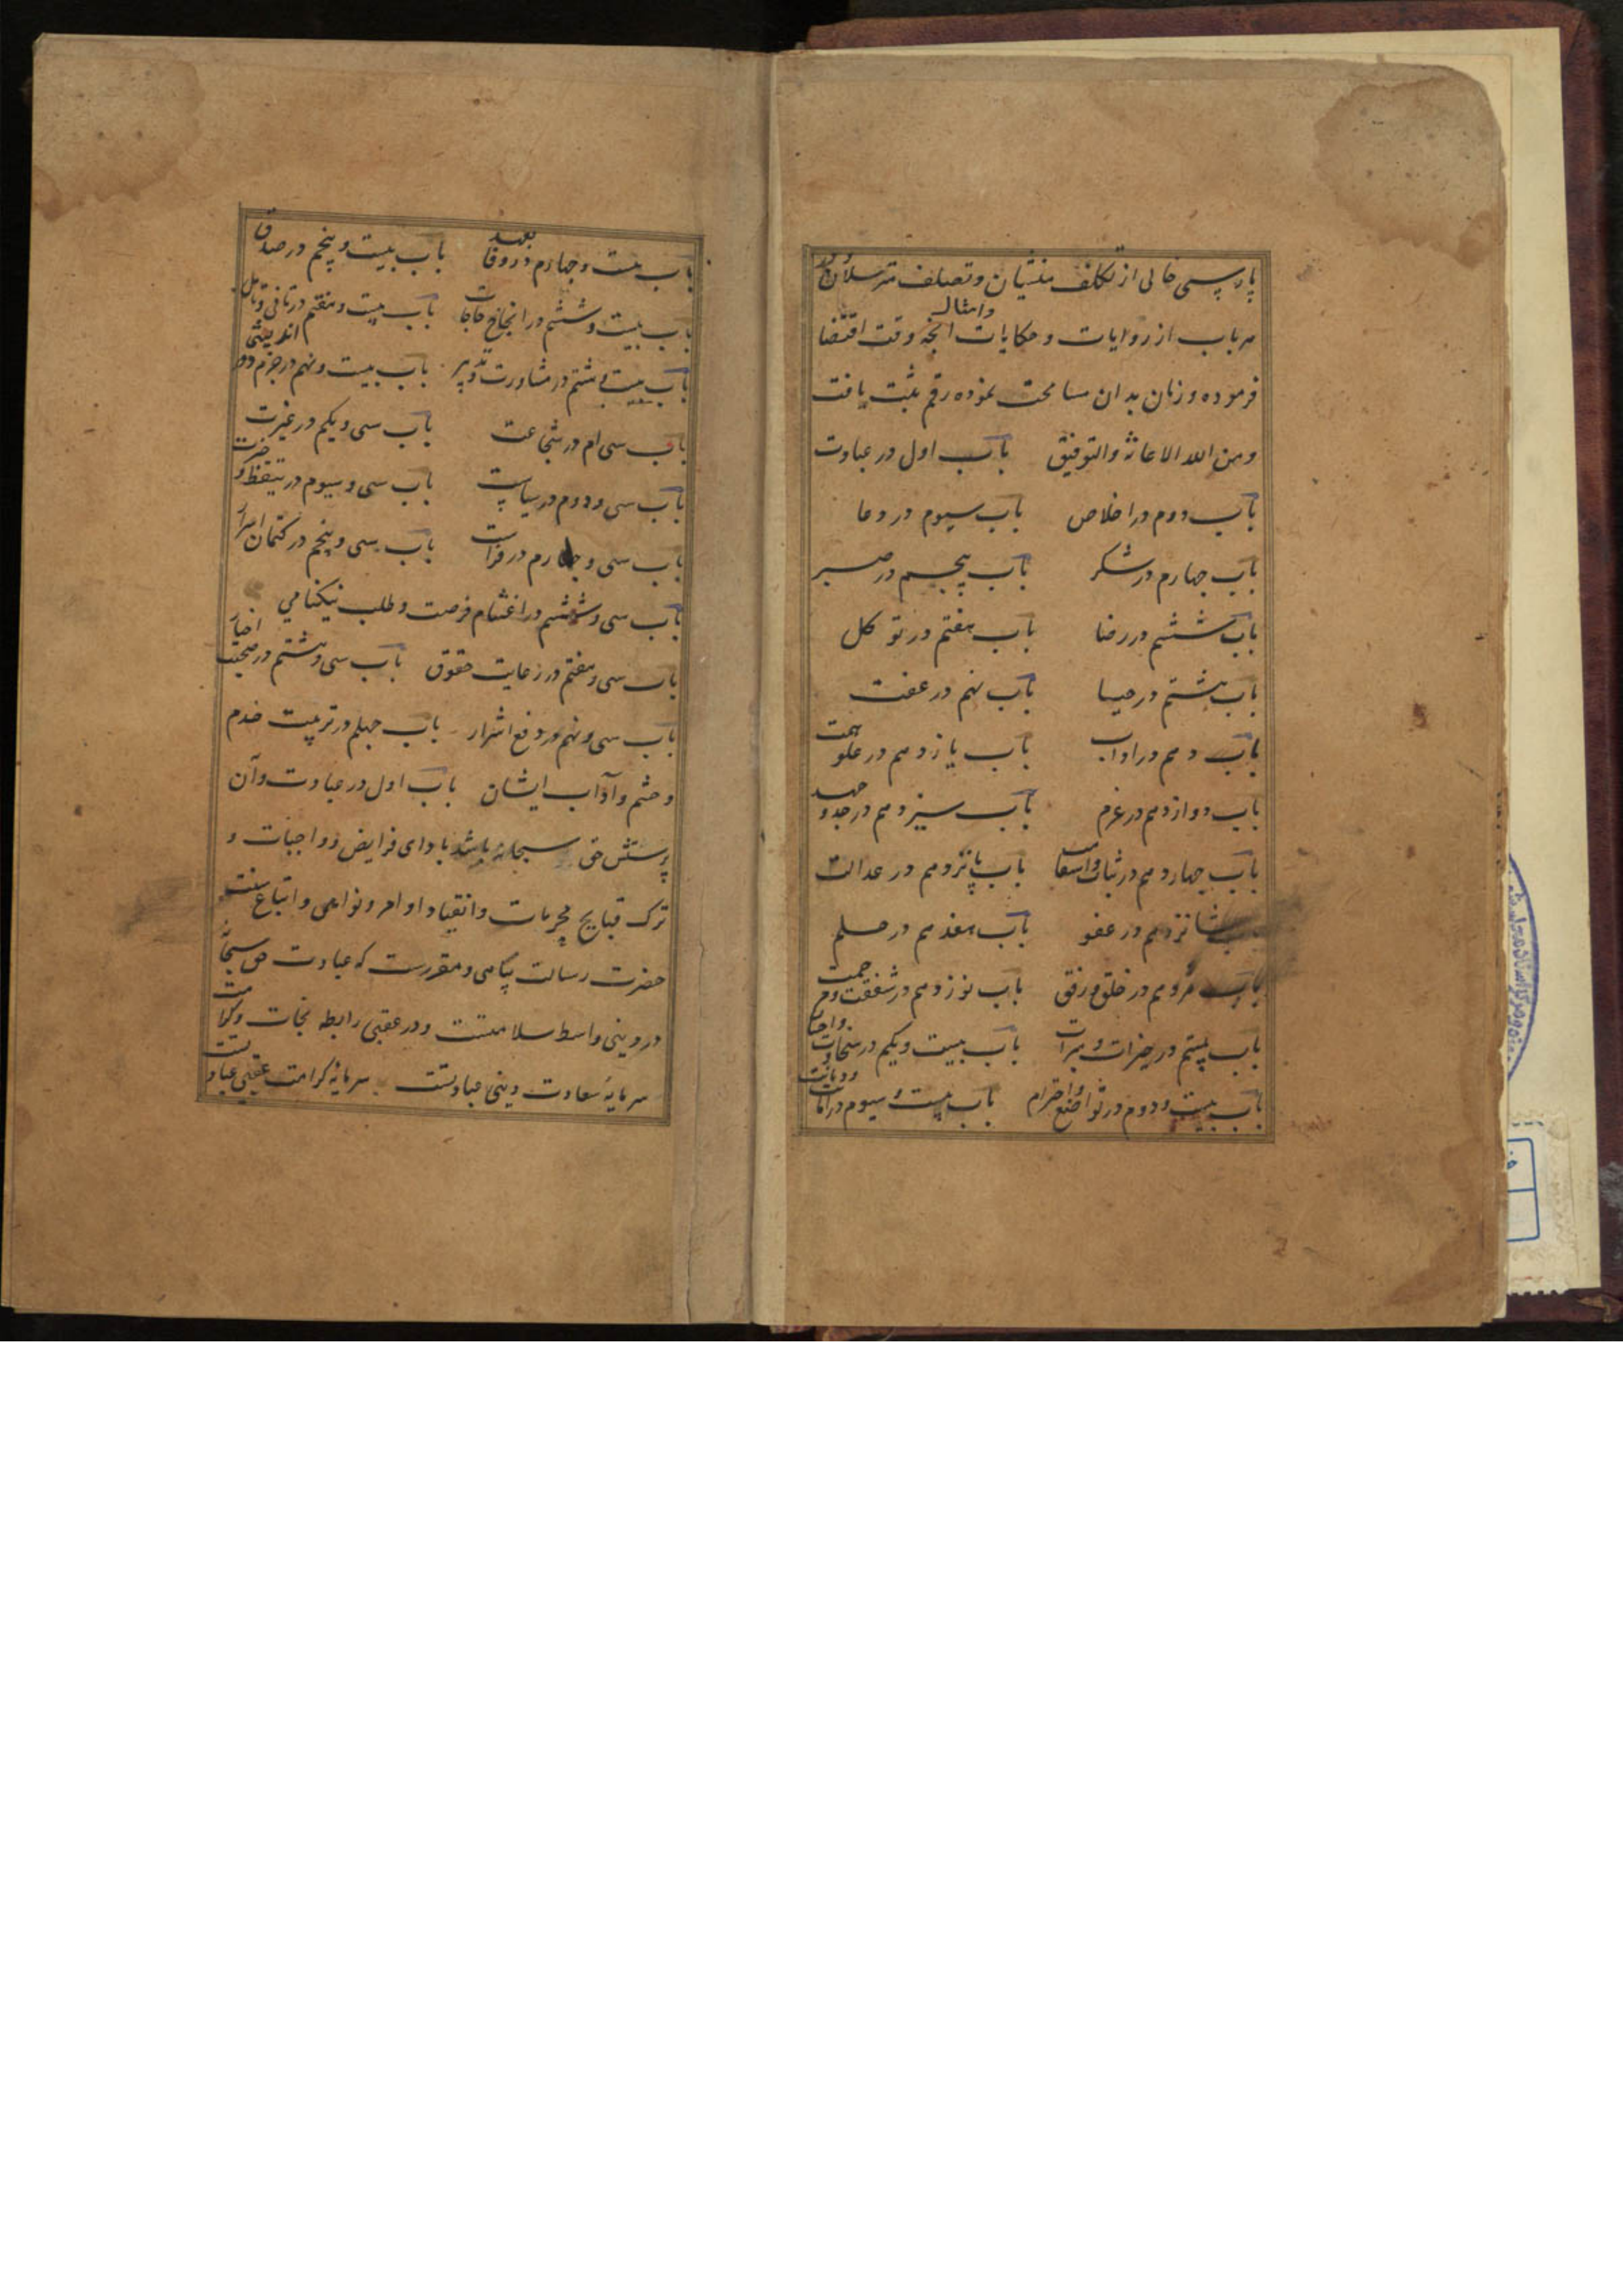 پارسی خالی از تکلف منشیان و تصلف مترسلان و در
هر باب از روایات و حکایات و امثال آنچه وقت اقتضا
فرموده و زبان بدان مسامحت نموده رقم ثبت یافت
ومن الله الاعانه والتوفیق باب اول در عبادت
باب دوم در اخلاص باب سیوم در دعا
باب چهارم در شکر باب پنجم در صبر
باب ششم در رضا باب هفتم در توکل
باب هشتم در حیا باب نهم در عفت
باب دهم در اداب باب یازدهم در علو همت
باب دوازدهم در عزم باب سیزدهم در جد و جهد
باب چهاردهم در ثبات و استقامت باب پانزدهم در عدالت
شانزدهم در عفو باب هفدهم در حلم
باب هژدهم در خلق و رفق باب نوزدهم در شفقت و مرحمت
باب بیستم در خیرات و مبرات باب بیست و یکم در سخاوت و احسان
باب بیست و دوم در تواضع و احترام باب بیست و سیوم در امانت و دیانت
باب بیست و چهارم در وفا بعهد باب بیست و پنجم در صدق
باب بیست و ششم در انجاح حاجات باب بیست و هفتم در تانی و تامل
باب بیست و هشتم در مشاورت و تدبیر باب بیست و نهم در حزم و دور اندیشی
باب سی ام در شجاعت باب سی و یکم در غیرت
باب سی و دوم در سیاست باب سی و سیوم در تیقظ و خبرت
باب سی و چهارم در فراست باب سی و پنجم در کتمان اسرار
باب سی و ششم در اغتنام فرصت و طلب نیکنامی
باب سی و هفتم در رعایت حقوق باب سی و هشتم در صحبت اخیار
باب سی و نهم در دفع اشرار باب چهلم در تربیت خدم
و حشم و آداب ایشان باب اول در عبادت و آن
پرستش حق سبحانه باشد بادای فرایض و واجبات و
ترک قبایح و محرمات و انقیاد اوامر و نواهی و اتباع سنت
حضرت رسالت پناهی و مقررست که عبادت حق سبحانه
در دینی واسطه سلامتست و در عقبی رابطه نجات و کرامت
سرمایه سعادت دینی عبادتست سرمایه کرامت عقبی عبادتست